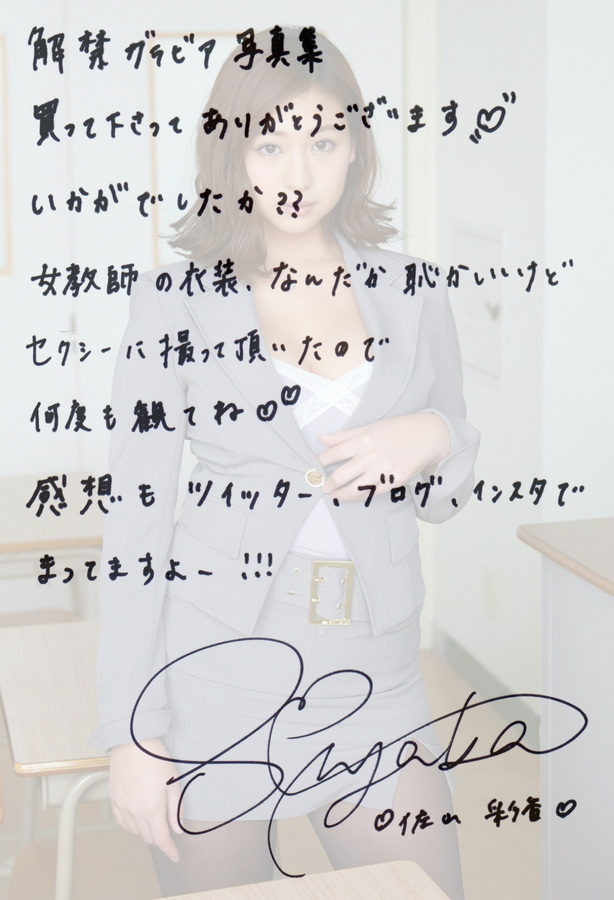 解禁グラビア写真集
買って下さってありがとうございます♡
いかがでしたか??
女教師の衣装、なんだか恥かいいけど
セクシーに撮って頂いたので
何度も観てね♡♡
感想もツイッター、ブログ、インスタで
まってますよー!!!
Sayaka
♡佐山 彩香♡